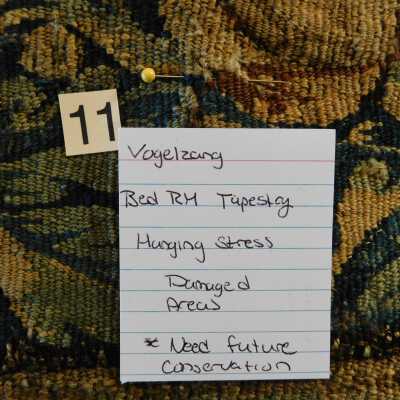 11
Vogelzang
Bed RM Tapestry
Hanging Stress
Damaged
Areas
* Need future
conservation